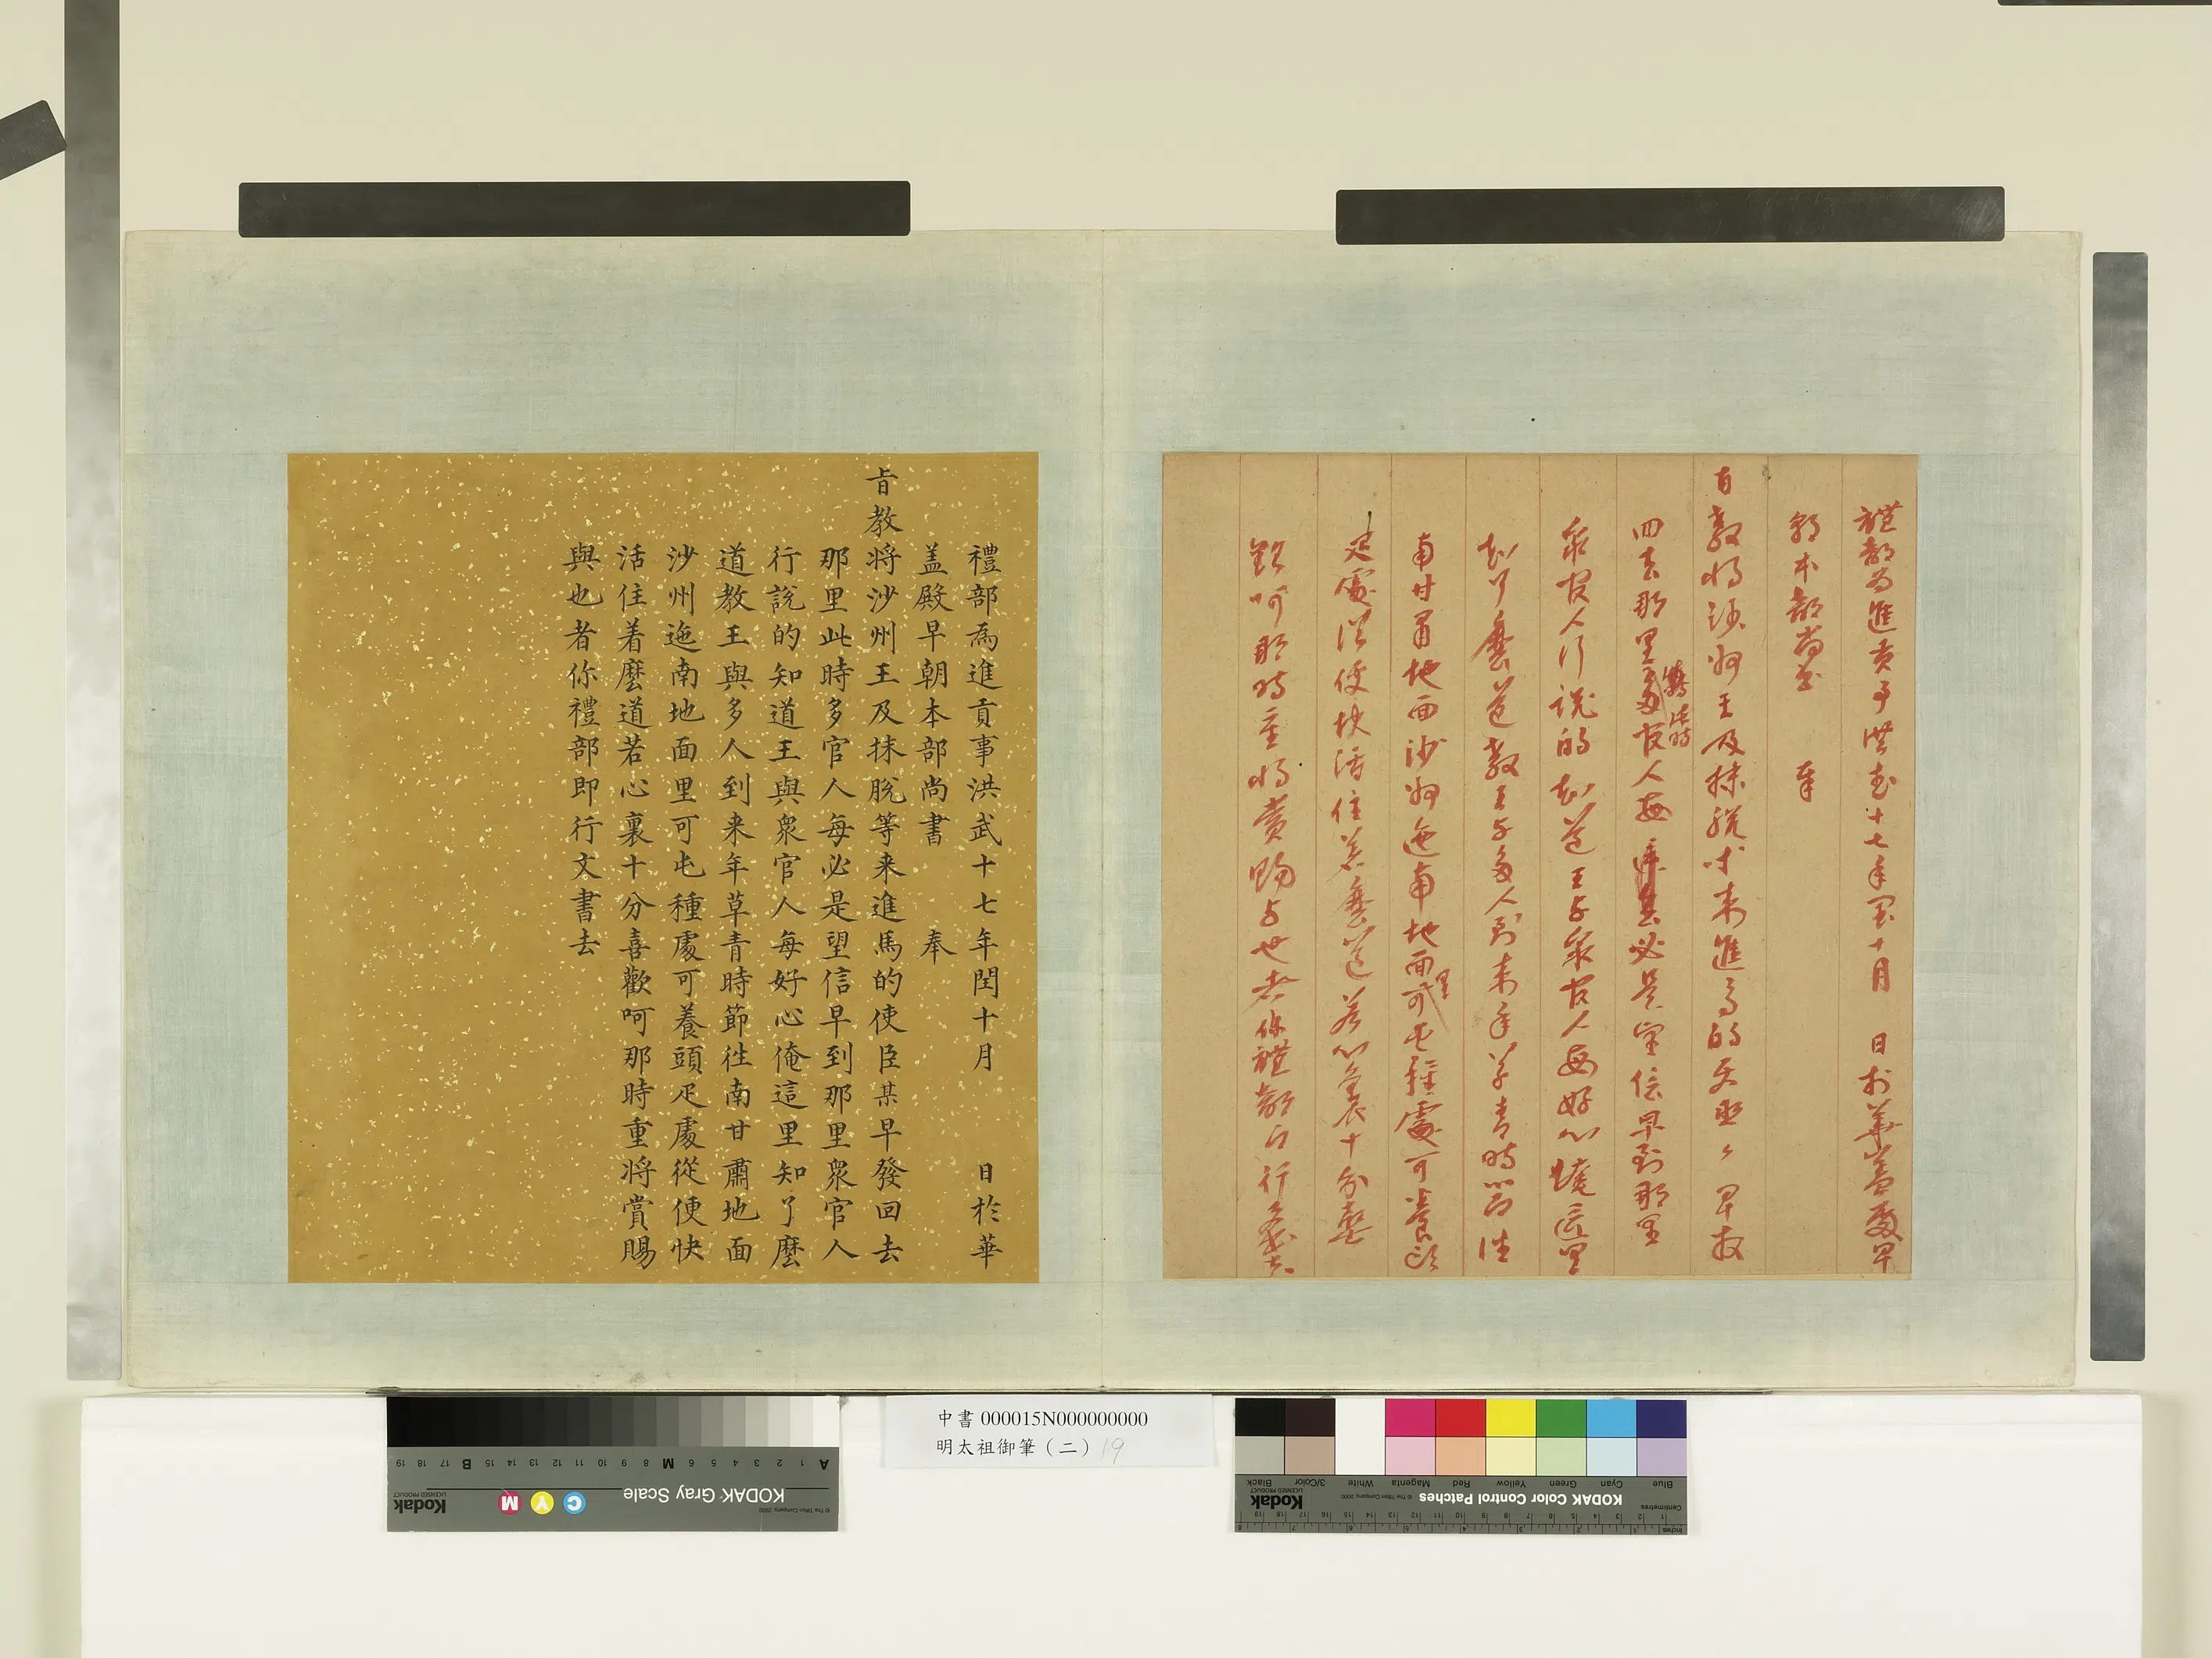 禮部為進貢事洪武十七年閏十月 日於華蓋殿早
朝本部尚書 奉
旨教將沙州王及抹脫等來進馬的使臣々早教
回去那里此時多官人每必是望信早到那里
衆官人行說的知道王与衆官人每好心俺這里
知了麼道教王与多人到来年草青時節往
南甘肅地面沙州迤南地面里可屯種處可養頭
疋處從便快活住着麼道若心裏十分喜
歡呵那時重將賞賜与也者你禮部即行文書去
禮部爲進貢事洪武十七年閏十月 日於華
盖殿早朝本部尚書 奉
旨教将沙州王及抹脫等来進馬的使臣某早發回去
那里此時多官人每必是望信早到那里衆官人
行說的知道王與衆官人每好心俺這里知了麼
道教王與多人到来年草青時節徃南甘肅地面
沙州迤南地面里可屯種處可養頭疋處從便快
活住着麼道若心裏十分喜歡呵那時重将賞賜
與也者你禮部即行文書去
中書 000015N000000000
明太祖御筆（二）19
KODAK Gray Scale
Kodak
LICENSED PRODUCT
© The Tiffen Company, 2000
C Y M
A 1 2 3 4 5 6 M 8 9 10 11 12 13 14 15 B 17 18 19
KODAK Color Control Patches
Kodak
LICENSED PRODUCT
© The Tiffen Company, 2000
Blue Cyan Green Yellow Red Magenta White 3/Color Black
Centimetres
Inches